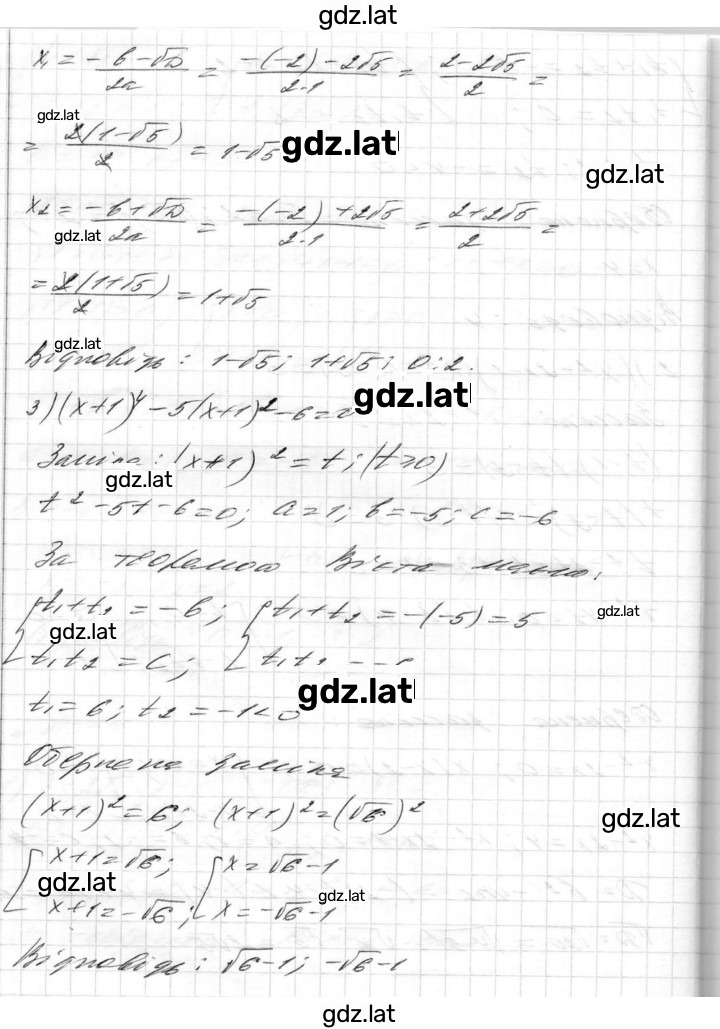 gdz.lat
x₁ = (-b-√D)/2a = (-(-2)-2√5)/(2·1) = (2-2√5)/2 =
gdz.lat
= 2(1-√5)/2 = 1-√5 gdz.lat
gdz.lat
x₂ = (-b+√D)/2a = (-(-2)+2√5)/(2·1) = (2+2√5)/2 =
gdz.lat
= 2(1+√5)/2 = 1+√5
gdz.lat
Відповідь: 1-√5; 1+√5; 0; 2.
3) (x+1)⁴ - 5(x+1)² - 6 = gdz.lat
Заміна: (x+1)² = t; (t≥0)
gdz.lat
t² - 5t - 6 = 0; a = 1; b = -5; c = -6
За теоремою Вієта маємо:
{ t₁+t₂ = -b; { t₁+t₂ = -(-5) = 5 gdz.lat
gdz.lat
t₁t₂ = c; t₁t₂
gdz.lat
t₁ = 6; t₂ = -1 < 0
Обернена заміна
(x+1)² = 6; (x+1)² = (√6)²
gdz.lat
[ x+1 = √6; [ x = √6-1
gdz.lat gdz.lat
x+1 = -√6; x = -√6-1
Відповідь: √6-1; -√6-1
gdz.lat